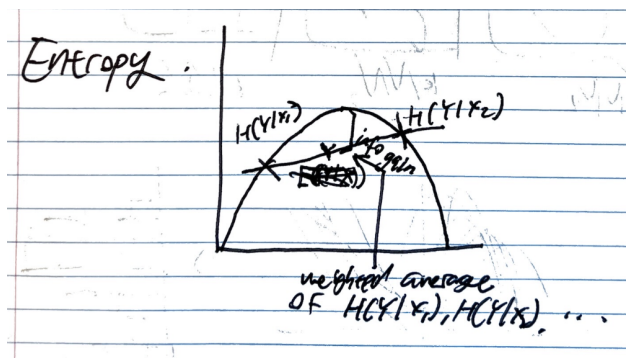 Entropy.
H(Y|X₁)
H(Y|X₂)
info gain
weighted average
OF H(Y|X₁), H(Y|X₂), ....